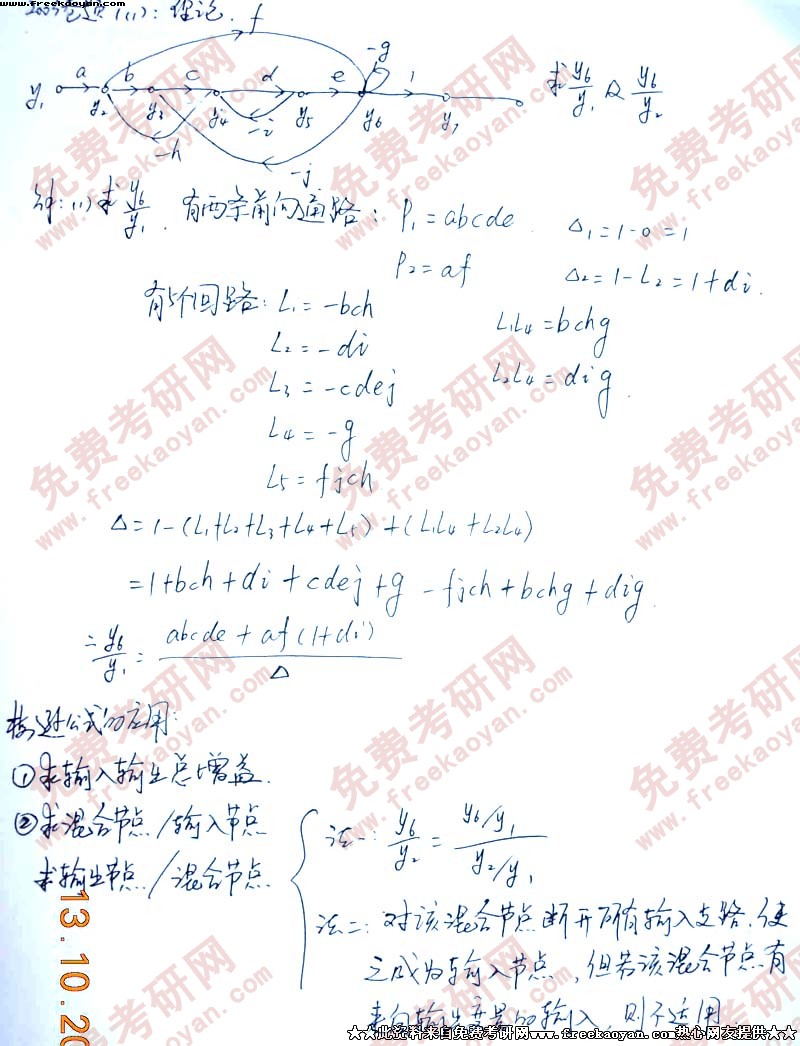 www.freekaoyan.com
(1):理论. f
-g
a b c d e 1
y₁ y₂ y₃ y₄ y₅ y₆ y₇
-h -i -j
求 y₆/y₁ 及 y₆/y₂
解:(1)求 y₆/y₁. 有两条前向通路: P₁=abcde Δ₁=1-0=1
P₂=af Δ₂=1-L₂=1+di.
有5个回路: L₁=-bch L₁L₄=bchg
L₂=-di
L₃=-cdej L₂L₄=dig.
L₄=-g
L₅=fjch
Δ=1-(L₁+L₂+L₃+L₄+L₅)+(L₁L₄+L₂L₄)
=1+bch+di+cdej+g-fjch+bchg+dig.
∴ y₆/y₁ = (abcde+af(1+di))/Δ
梅逊公式的应用:
①求输入输出总增益.
②求混合节点/输入节点
求输出节点/混合节点
法一: y₆/y₂ = (y₆/y₁)/(y₂/y₁)
法二: 对该混合节点断开所有输入支路.使
之成为输入节点, 但若该混合节点有
来自输出变量的输入, 则不适用.
13.10.20
免费考研网
www.freekaoyan.com
★★此资料来自免费考研网www.freekaoyan.com热心网友提供★★